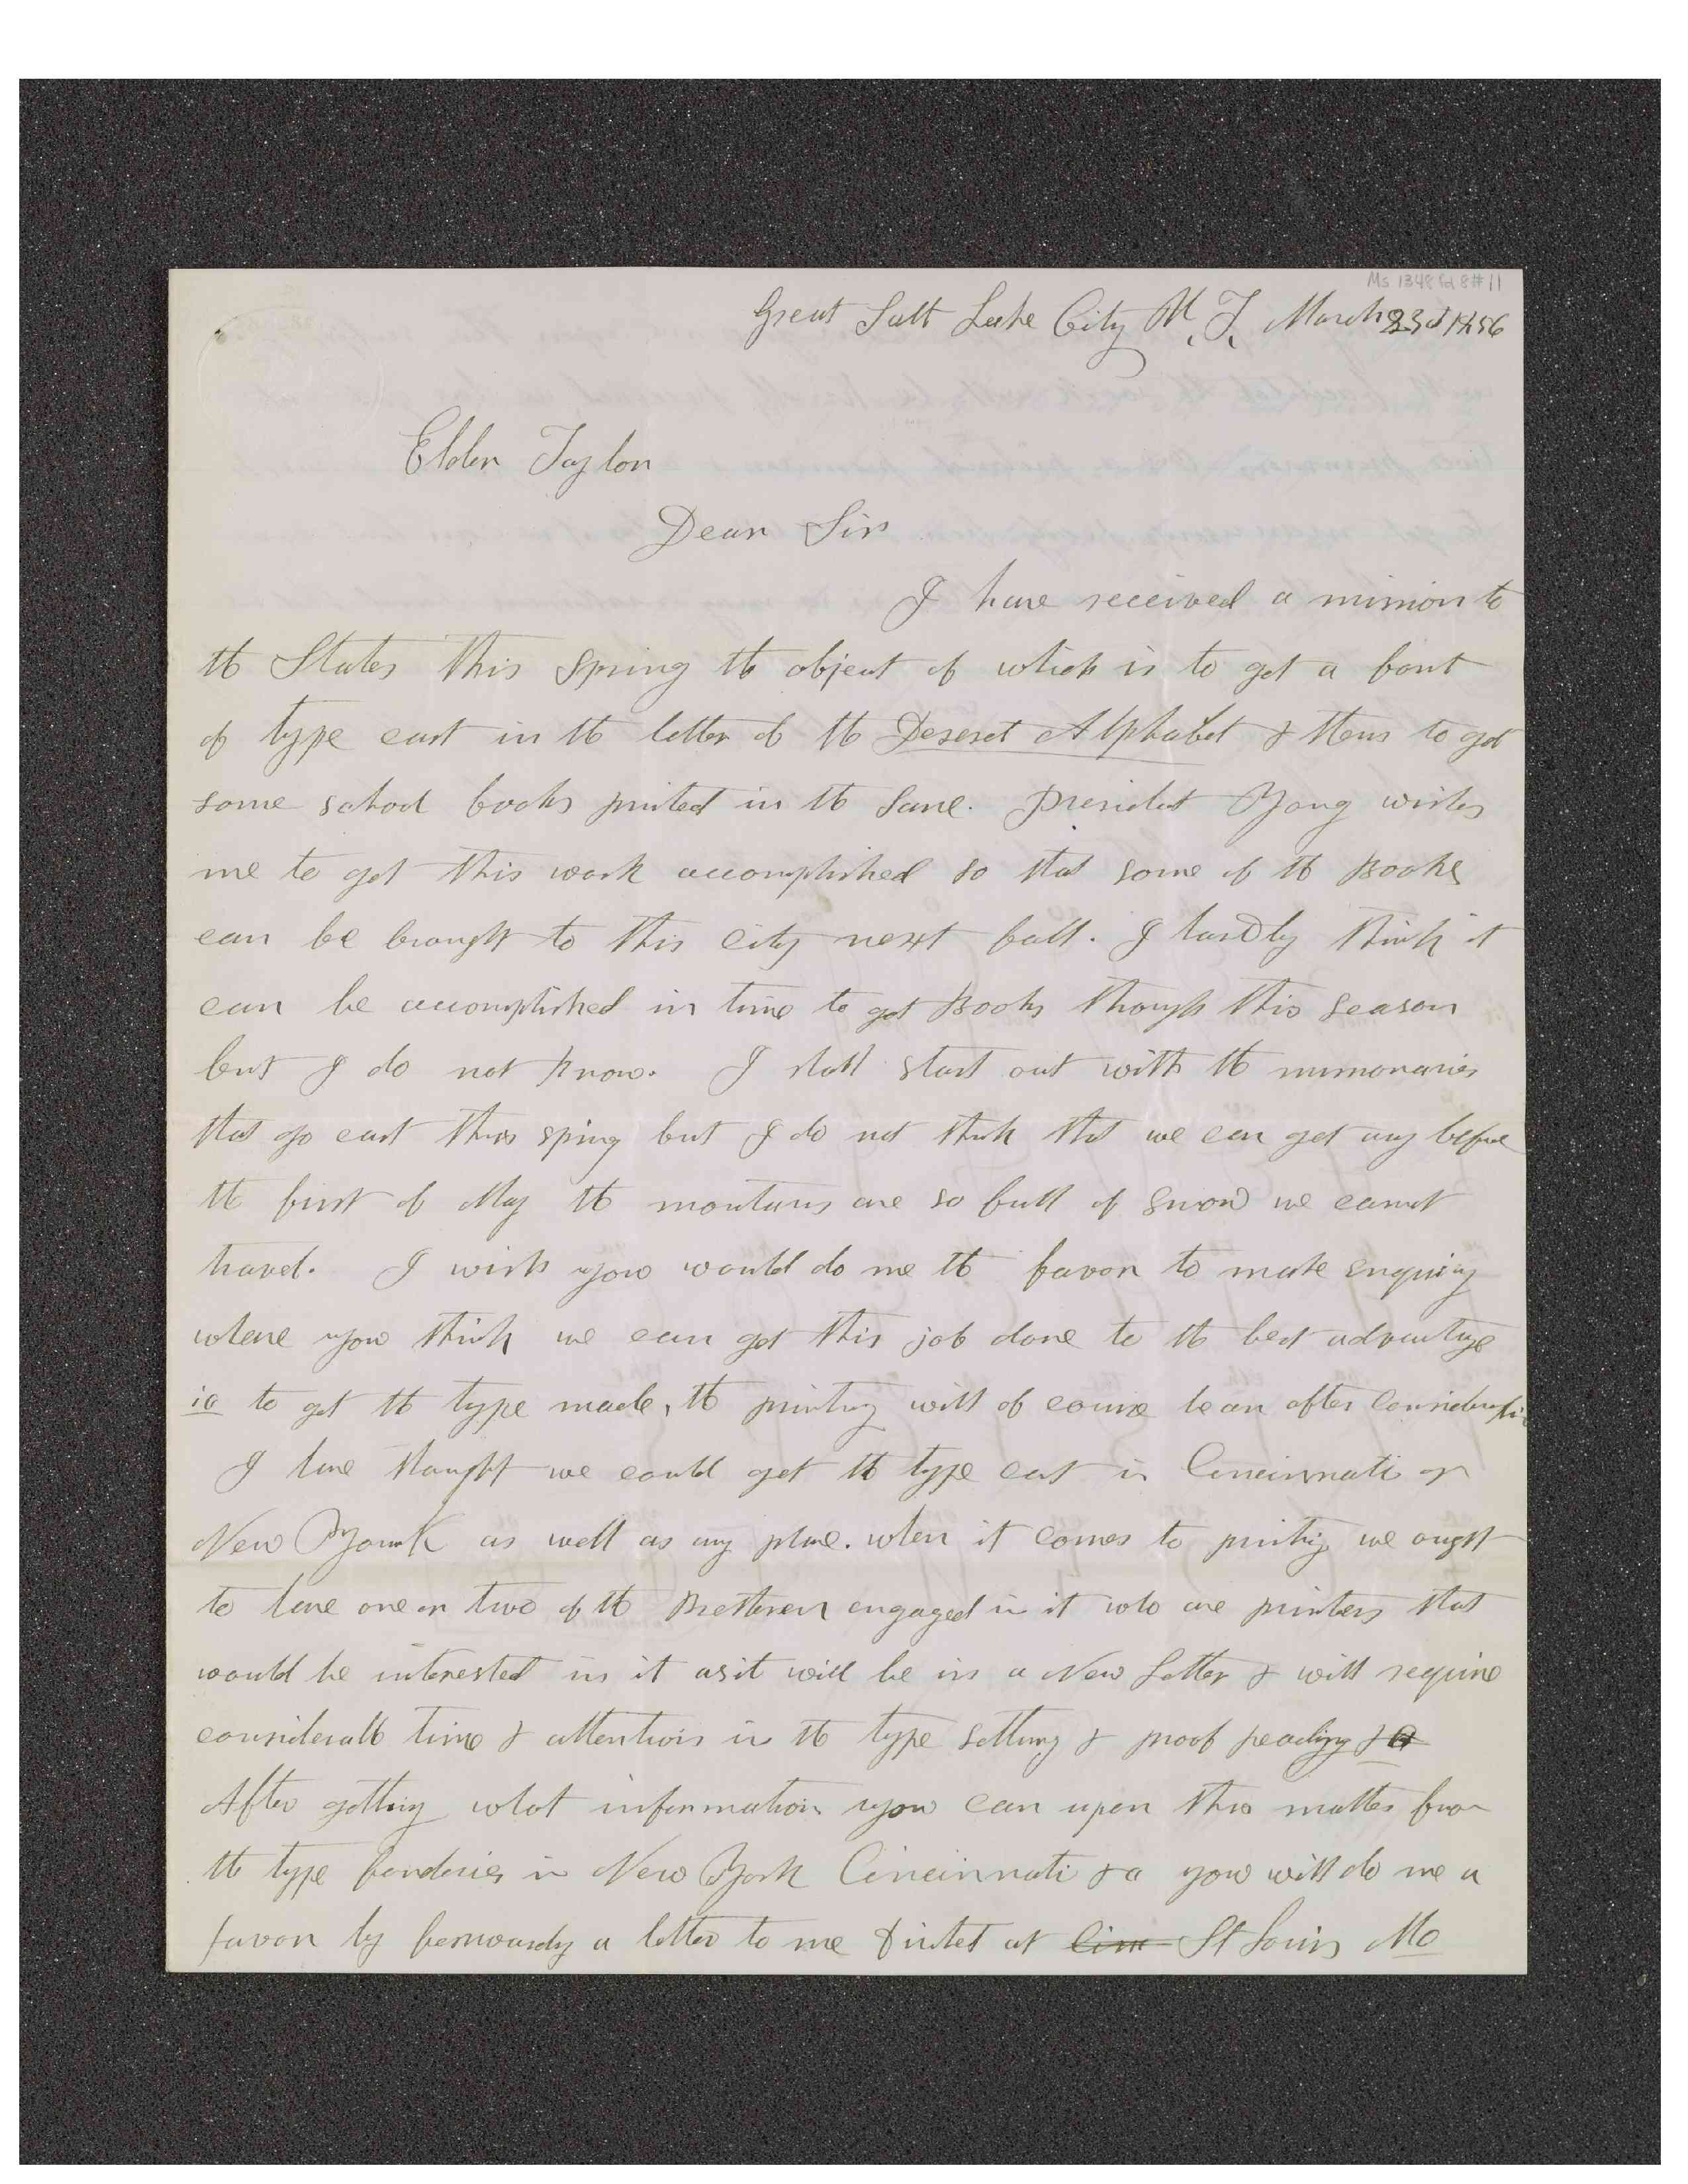 Ms 1348 fd 8 #11
Great Salt Lake City U. T. March 23d 1856
Elder Taylor
Dear Sir
I have received a mission to
the States this Spring the object of which is to get a font
of type cast in the letter of the Deseret Alphabet & then to get
some school books printed in the same. President Young wishes
me to get this work accomplished so that some of the Books
can be brought to this city next fall. I hardly think it
can be accomplished in time to get Books though this season
but I do not know. I shall start out with the missionaries
that go east this spring but I do not think that we can get any before
the first of May the mountains are so full of snow we cannot
travel. I wish you would do me the favor to make enquiry
where you think we can get this job done to the best advantage
ie to get the type made, the printing will of course be an after consideration
I have thought we could get the type cast in Cincinnati or
New York as well as any place. when it comes to printing we ought
to have one or two of the Bretheren engaged in it who are printers that
would be interested in it as it will be in a New Letter & will require
considerable time & attention in the type setting & proof reading &c
After getting what information you can upon this matter from
the type founderies in New York Cincinnati &c you will do me a
favor by forwarding a letter to me directed at Cinn St Louis Mo